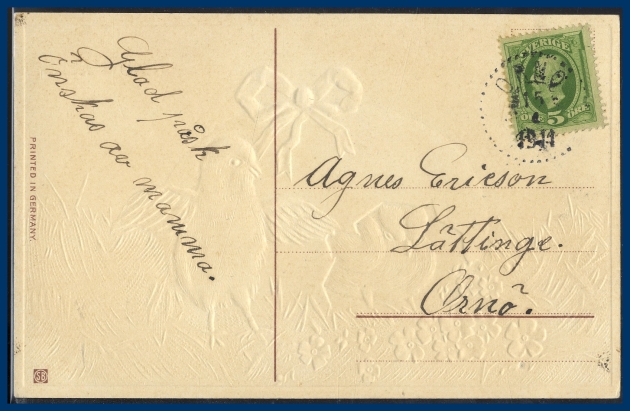 Glad påsk
Önskas av mamma.
PRINTED IN GERMANY.
SB
SVERIGE
5 ÖRE
1911
Agnes Ericson
Låttinge.
Ornö.